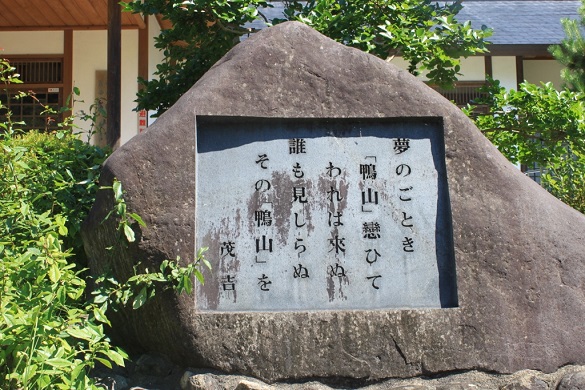 夢のごとき
「鴨山」戀ひて
われは來ぬ
誰も見しらぬ
その「鴨山」を
茂吉